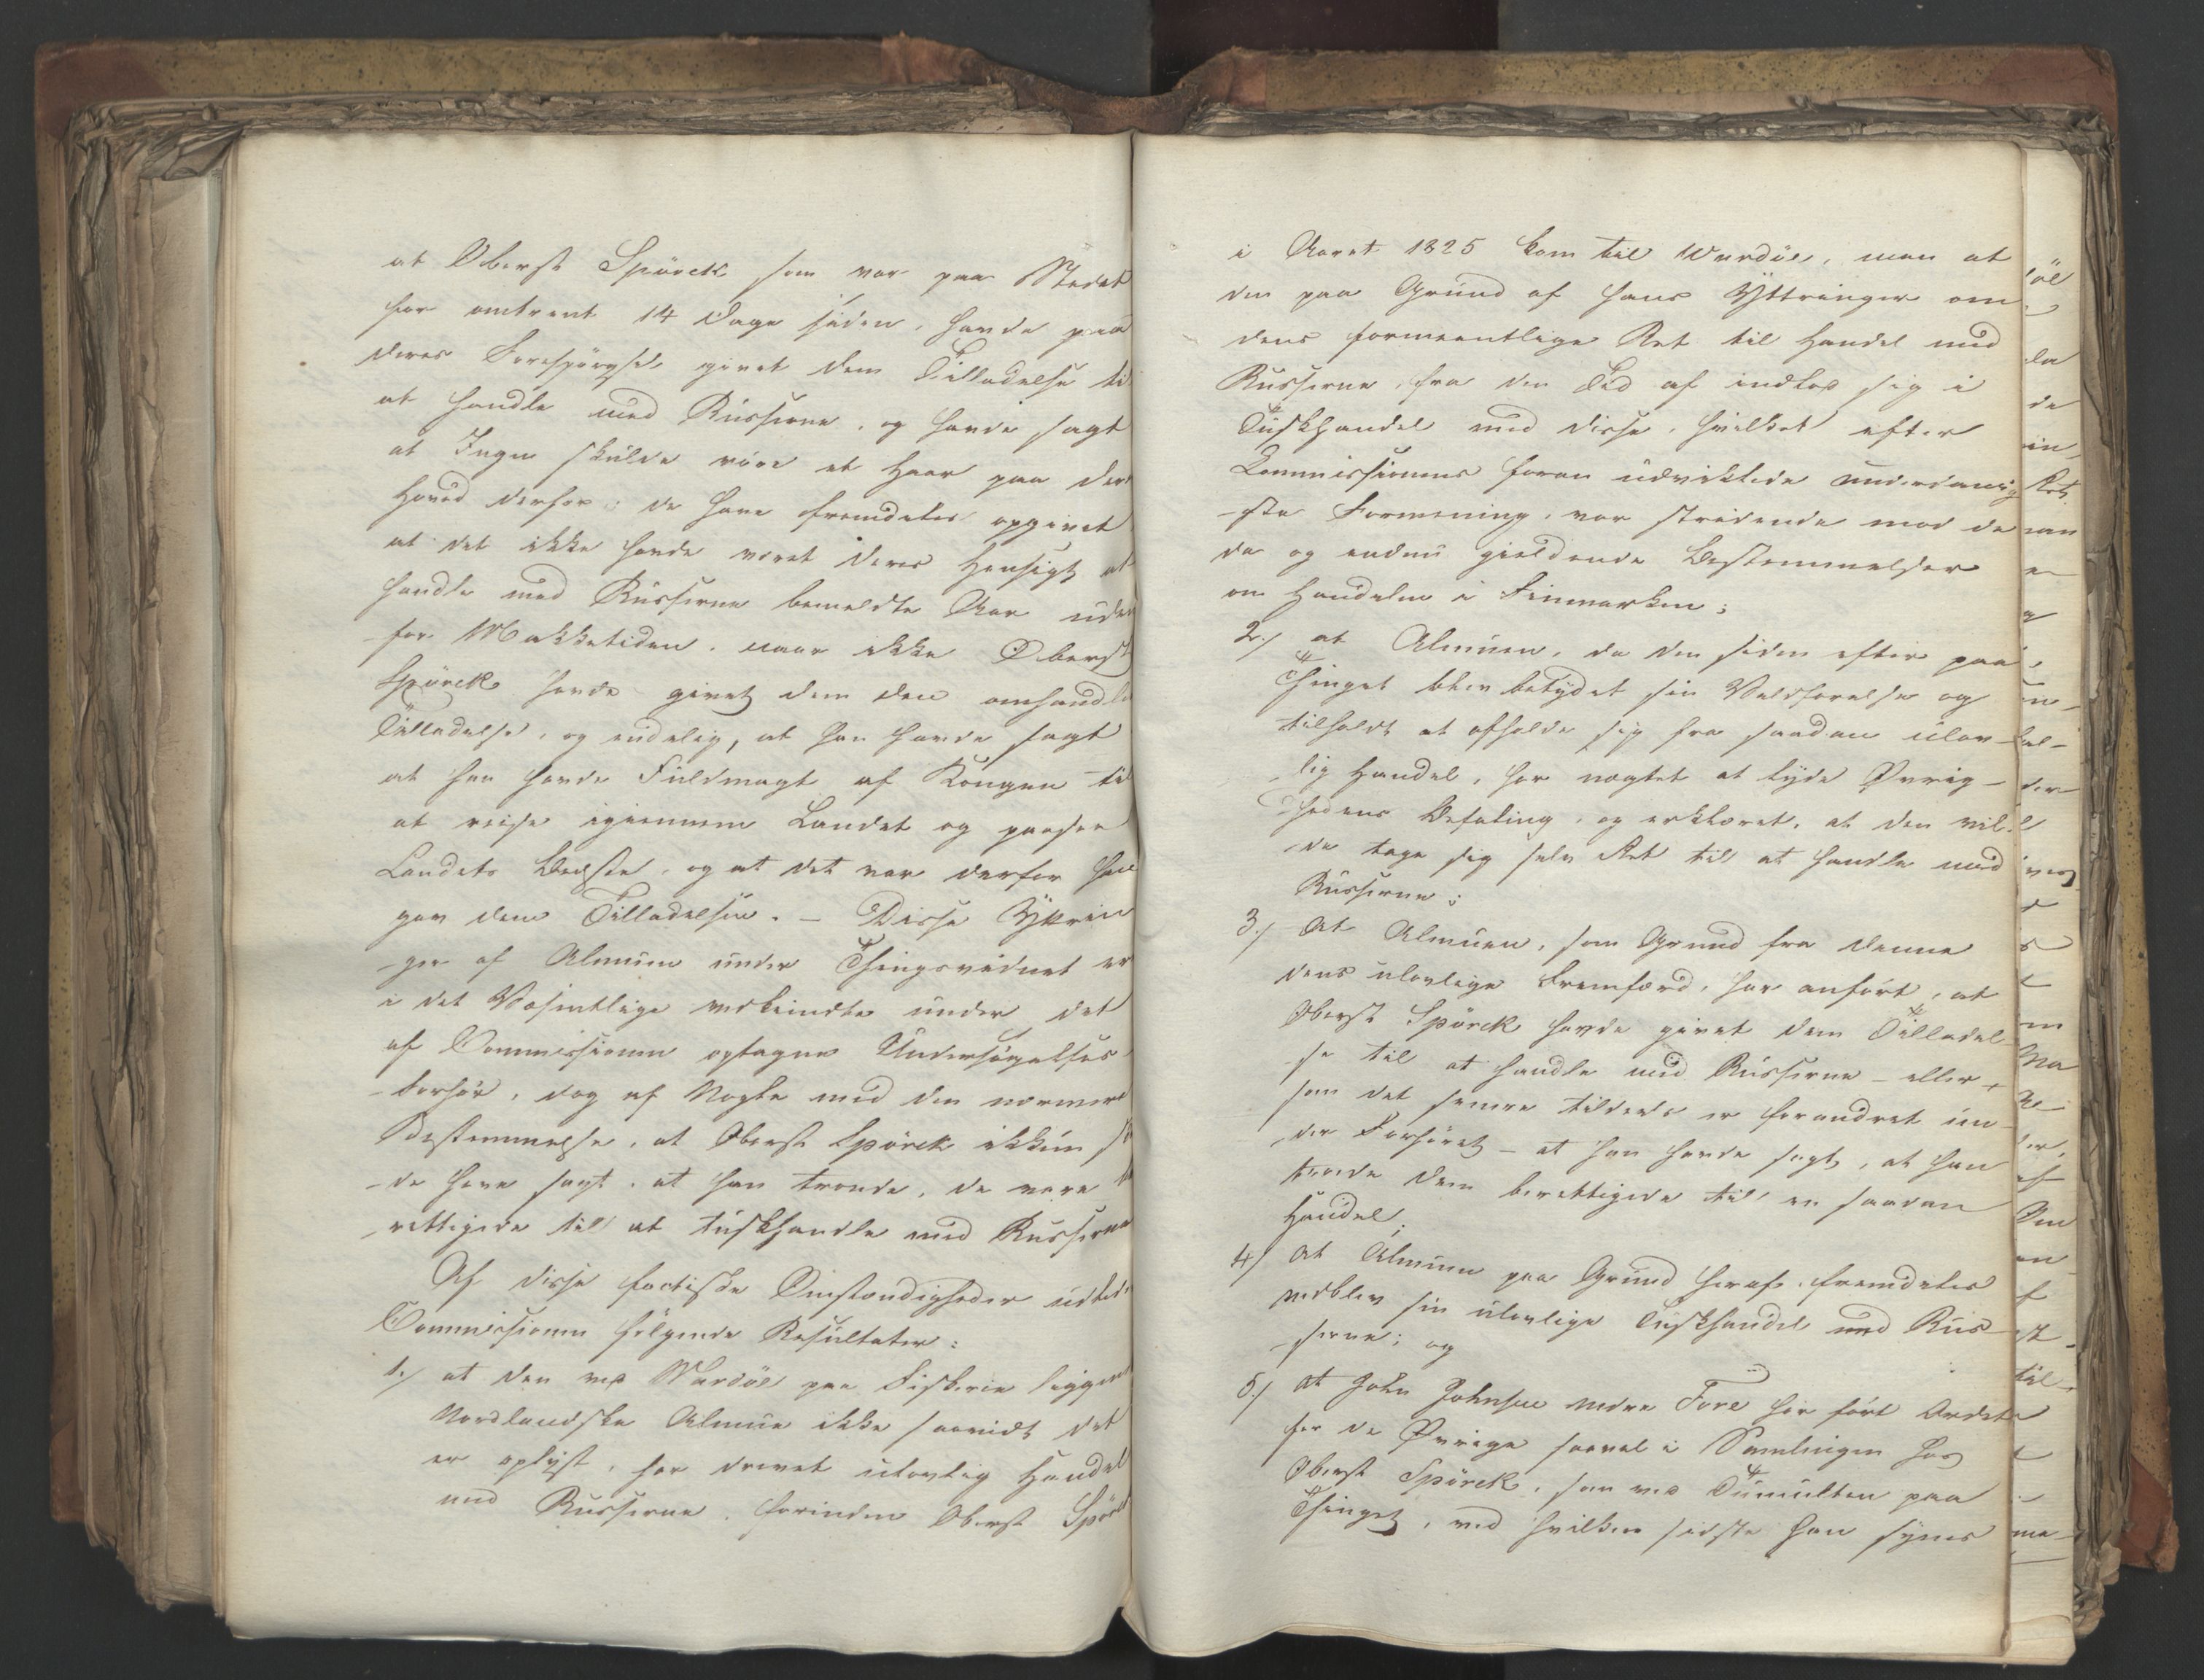 at Oberst Spörck som var paa Stedet
for omtrent 14 Dage siden, havde paa
deres Forespörgsel givet dem Tilladelse til
at handle med Russerne, og havde sagt
at Ingen skulde röre et Haar paa deres
Hoved derfor; de have fremdeles opgivet
at det ikke havde været deres Hensigt at
handle med Russerne bemeldte Aar uden
for Makketiden, naar ikke Oberst
Spörck havde givet dem den omhandlede
Tilladelse, og endelig, at han havde sagt
at han havde Fuldmagt af Kongen til
at reise igiennem Landet og paasee
Landets Bedste, og at det var derfor han
gav dem Tilladelsen. – Disse Yttrin
-ger af Almuen under Thingsvidnet er
i det Væsentlige vedkiendte under det
af Commissionen optagne Undersögelses
-forhör, dog af Nogle med den nærmere
Bestemmelse, at Oberst Spörck ikkun
-de have sagt, at han troede, de vare
rettigede til at tuskhandle med Russerne
Af disse factiske Omstændigheder udleder
Commissionen fölgende Resultater:
1./ at den ved Wardöe paa Fiskerie liggende
Nordlandske Almue ikke saavidt det
er oplyst, har drevet ulovlig Handel
med Russerne, forinden Oberst Spörck
i Aaret 1825 kom til Wardöe, men at
den paa Grund af hans Yttringer om
dens formeentlige Ret til Handel med
Russerne, fra den Tid af indlod sig i
Tuskhandel med disse, hvilket efter
Commissionens foran udviklede underdanig
-ste Formening, var stridende mod de
da og endnu gieldende Bestemmelser
om Handelen i Finmarken;
2./ at Almuen, da den siden efter paa
Thinget blev betydet sin Vildfarelse og
tilholdt at afholde sig fra saadan ulov-
lig Handel, har nægtet at lyde Øvrig-
hedens Befaling, og erklæret, at den vil-
de tage sig selv Ret til at handle med
Russerne;
3./ At Almuen, som Grund fra denne
dens ulovlige Fremfærd, har anfört, at
Oberst Spörck havde givet dem Tilladel
-se til at handle med Russerne – eller
som det senere tildeels er forandret un-
der Forhöret – at han havde sagt, at han
troede dem berettigede til en saadan
Handel;
4/ At Almuen paa Grund heraf fremdeles
vedblev sin ulovlige Tuskhandel med Rus-
serne; og
5./ At John Johnsen Nedre Fore har fört Ordet
for de Øvrige saavel i Samlingen hos
Oberst Spörck, som ved Tumulten paa
Thinget, ved hvilken sidste han synes